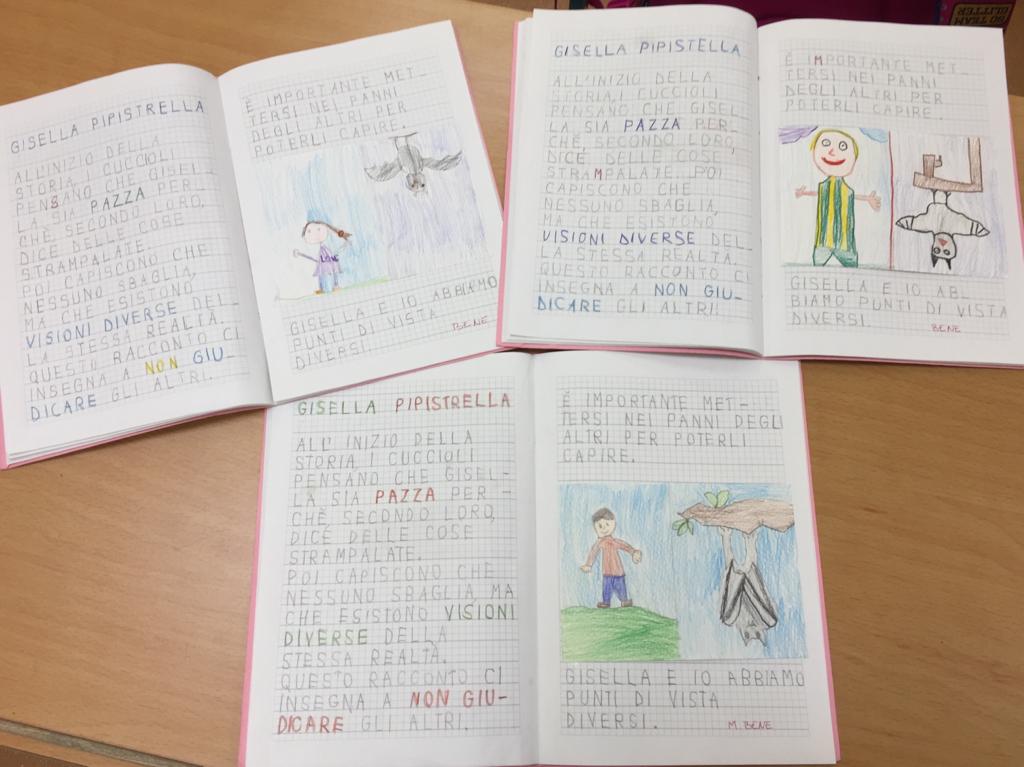 GISELLA PIPISTRELLA
ALL'INIZIO DELLA
STORIA, I CUCCIOLI
PENSANO CHE GISEL-
LA SIA PAZZA PER-
CHÈ SECONDO LORO,
DICE DELLE COSE
STRAMPALATE.
POI CAPISCONO CHE
NESSUNO SBAGLIA,
MA CHE ESISTONO
VISIONI DIVERSE DEL-
LA STESSA REALTÀ.
QUESTO RACCONTO CI
INSEGNA A NON GIU-
DICARE GLI ALTRI.
È IMPORTANTE MET-
TERSI NEI PANNI
DEGLI ALTRI PER
POTERLI CAPIRE.
GISELLA E IO ABBIAMO
PUNTI DI VISTA
DIVERSI.
BENE
GISELLA PIPISTELLA
ALL'INIZIO DELLA
STORIA, I CUCCIOLI
PENSANO CHE GISEL
LA SIA PAZZA PER-
CHÈ, SECONDO LORO,
DICE DELLE COSE
STRAMPALATE. POI
CAPISCONO CHE
NESSUNO SBAGLIA,
MA CHE ESISTONO
VISIONI DIVERSE DEL-
LA STESSA REALTÀ.
QUESTO RACCONTO CI
INSEGNA A NON GIU-
DICARE GLI ALTRI.
È IMPORTANTE MET-
TERSI NEI PANNI
DEGLI ALTRI PER
POTERLI CAPIRE.
GISELLA E IO AB-
BIAMO PUNTI DI VISTA
DIVERSI.
BENE
GISELLA PIPISTRELLA
ALL'INIZIO DELLA
STORIA, I CUCCIOLI
PENSANO CHE GISEL-
LA SIA PAZZA PER-
CHÈ SECONDO LORO,
DICE DELLE COSE
STRAMPALATE.
POI CAPISCONO CHE
NESSUNO SBAGLIA, MA
CHE ESISTONO VISIONI
DIVERSE DELLA
STESSA REALTÀ.
QUESTO RACCONTO CI
INSEGNA A NON GIU-
DICARE GLI ALTRI.
È IMPORTANTE MET-
TERSI NEI PANNI DEGLI
ALTRI PER POTERLI
CAPIRE.
GISELLA E IO ABBIAMO
PUNTI DI VISTA
DIVERSI.
M. BENE
GO TEAM
GLITTER